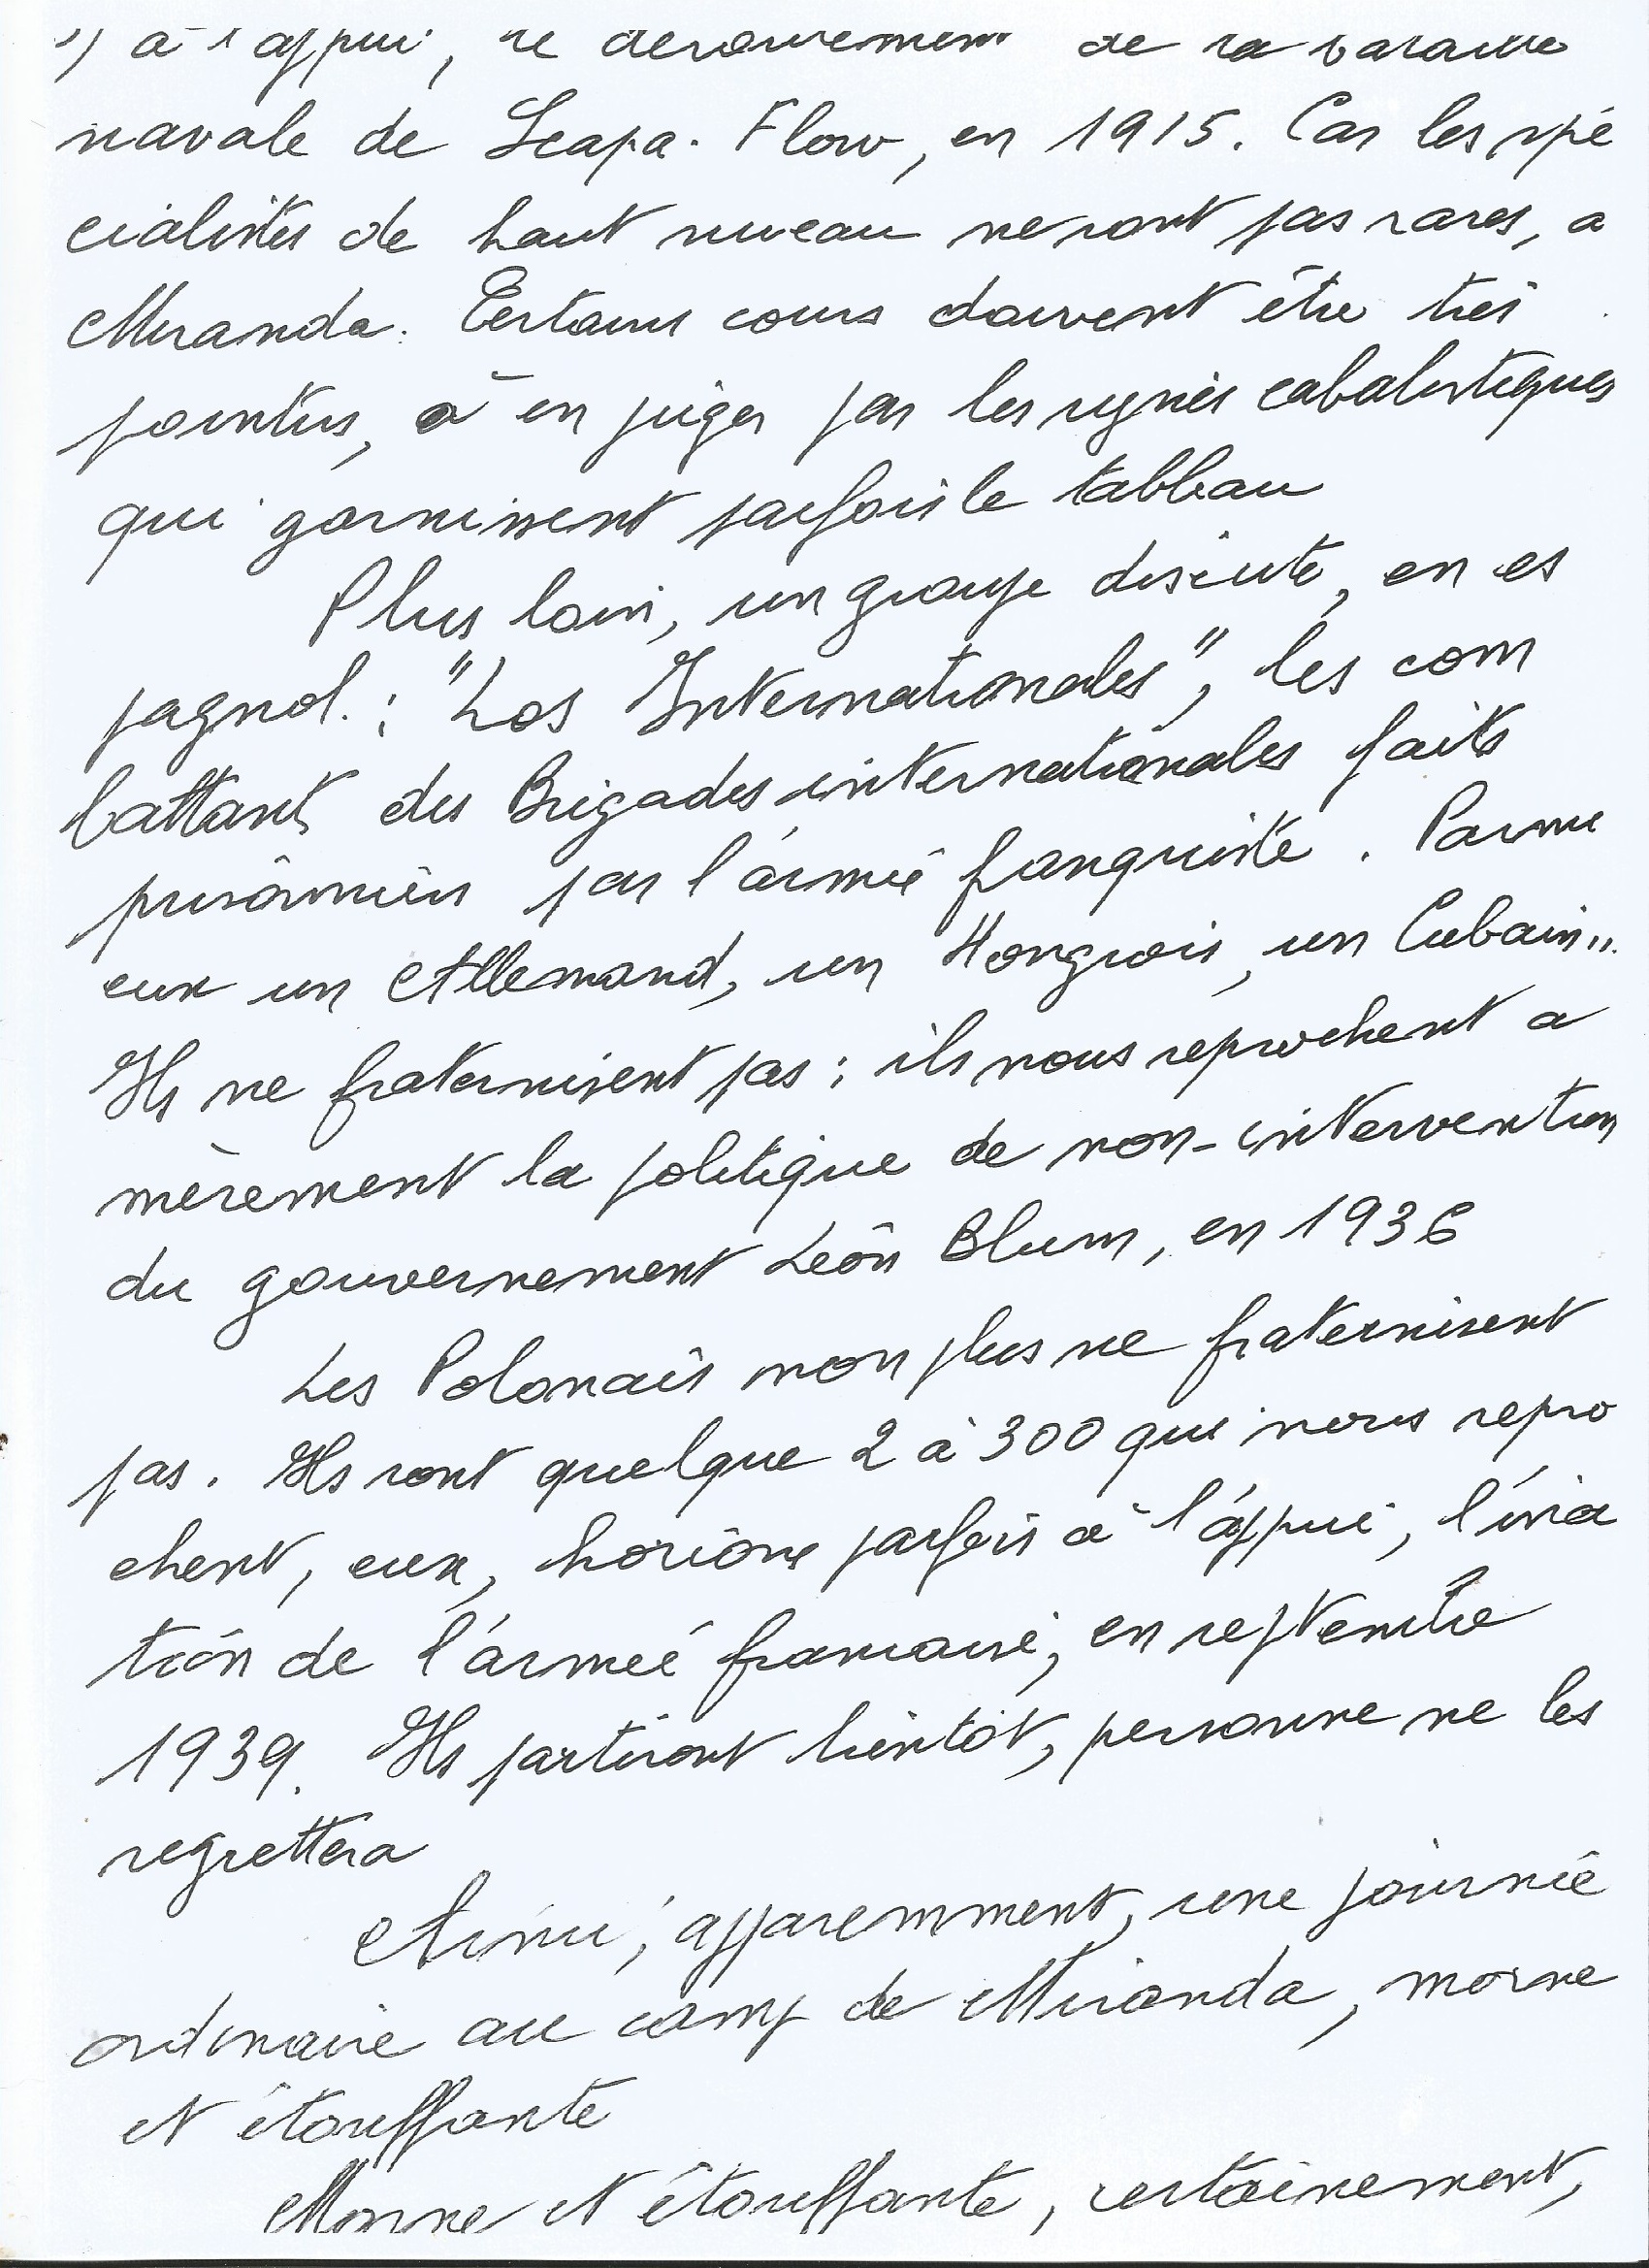 ) à l'appui, le déroulement de la bataille
navale de Scapa-Flow, en 1915. Car les spé
cialistes de haut niveau ne sont pas rares, a
Miranda. Certains cours doivent être très
pointus, à en juger par les signes cabalistiques
qui garnissent parfois le tableau
Plus loin, un groupe discute, en es
pagnol. : "Los Internationales", les com
battants des Brigades internationales faits
prisonniers par l'armée franquiste. Parmi
eux un Allemand, un Hongrois, un Cubain...
Ils ne fraternisent pas ; ils nous reprochent a
mèrement la politique de non-intervention
du gouvernement Léon Blum, en 1936
Les Polonais non plus ne fraternisent
pas. Ils sont quelque 2 à 300 qui nous repro
chent, eux, horions parfois à l'appui, l'inac
tion de l'armée française, en septembre
1939. Ils partiront bientôt, personne ne les
regrettera
Ainsi, apparemment, une journée
ordinaire au camp de Miranda, morne
et étouffante
Morne et étouffante, certainement,